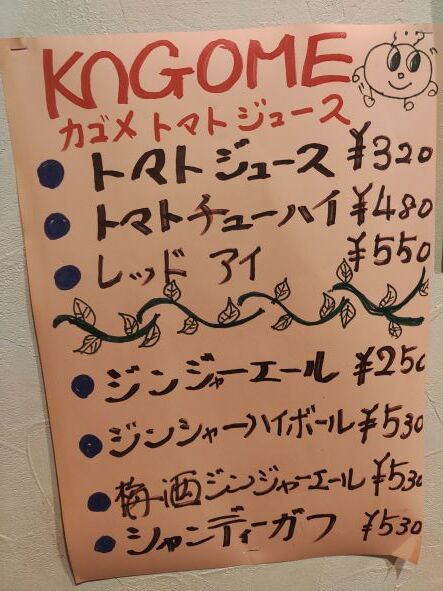 KAGOME
カゴメ トマトジュース
トマトジュース ¥320
トマトチューハイ ¥480
レッド アイ ¥550
ジンジャーエール ¥250
ジンシャーハイボール ¥530
梅酒ジンジャーエール ¥530
シャンディーガフ ¥530